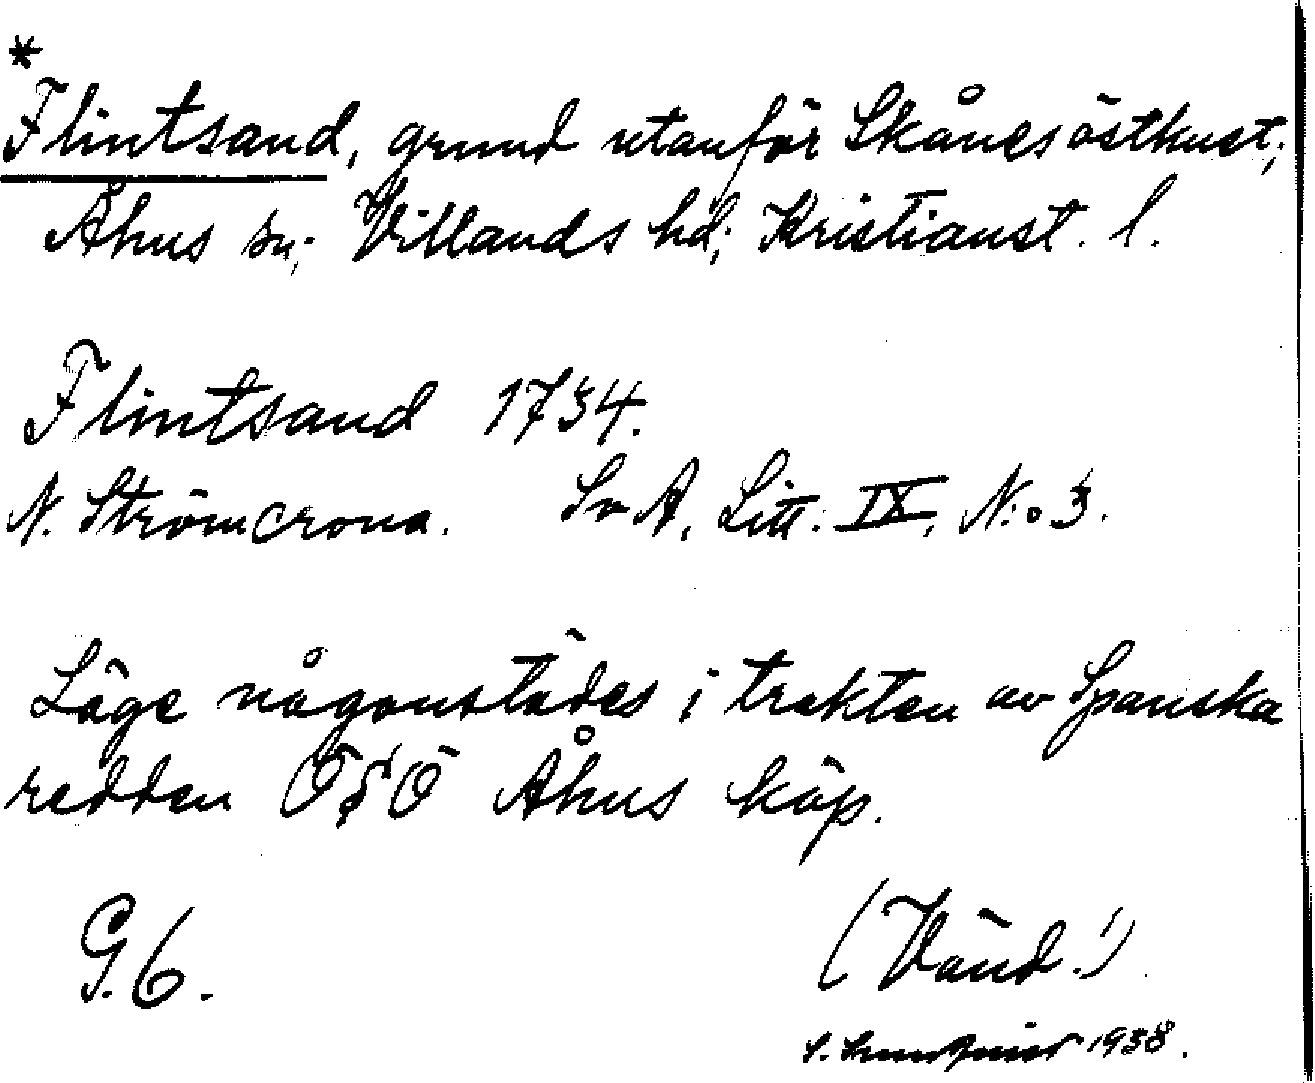 *
Flintsand, grund utanför Skånes östkust;
Åhus sn; Villands hd; Kristianst. l.
Flintsand 1734.
N. Strömcrona. SvA, Litt. IX, N:o 3.
Läge någonstädes i trakten av Spanska
redden ÖSÖ Åhus köp.
G. 6.
(Vänd!)
1938.